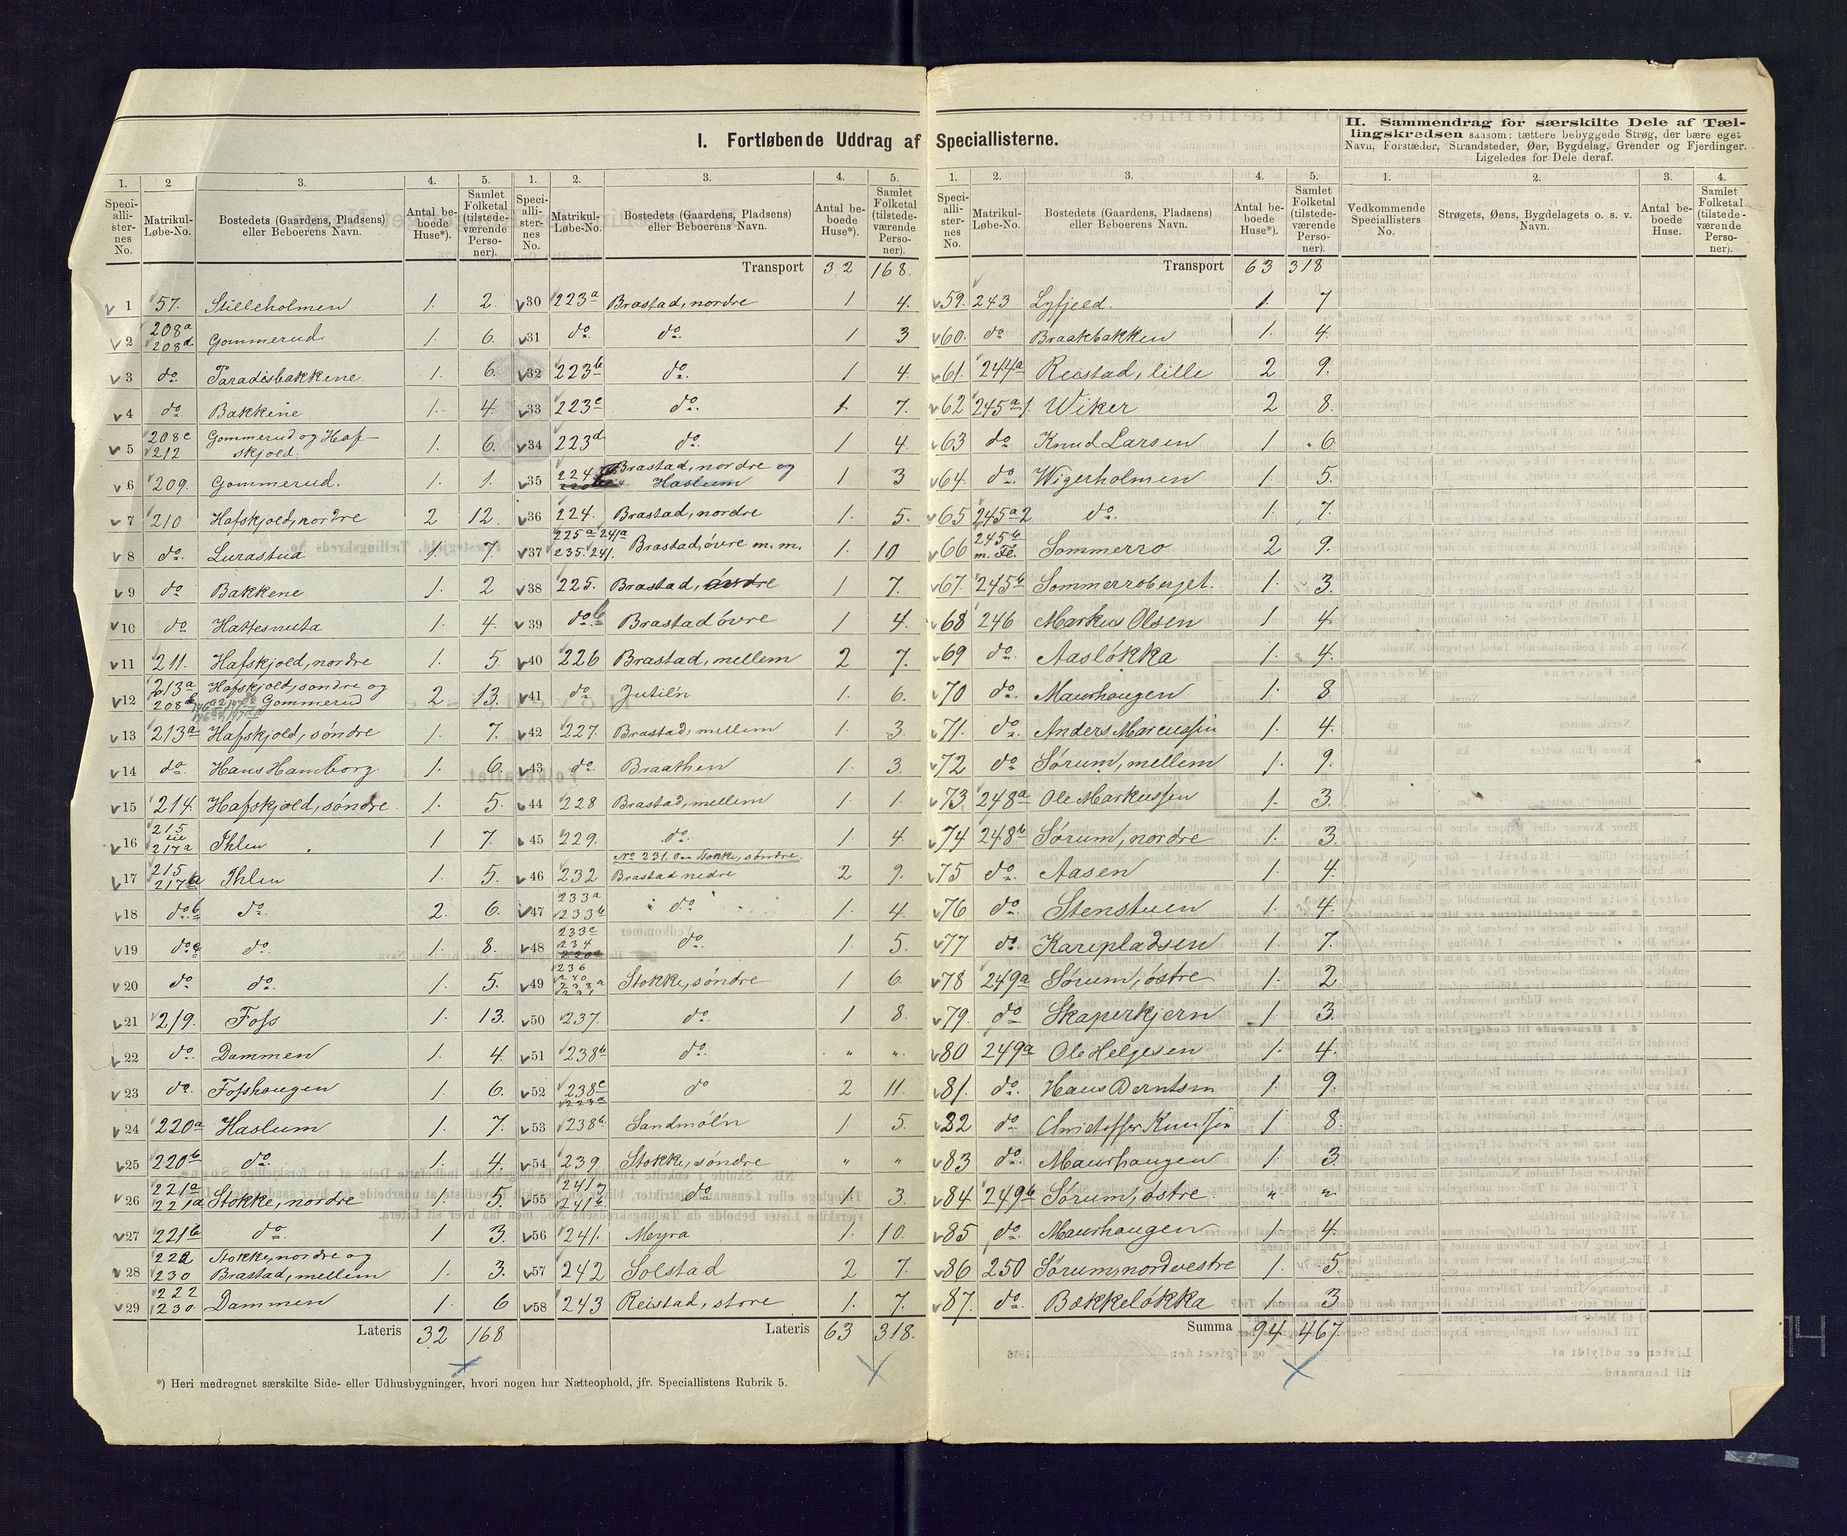 I. Fortløbende Uddrag af Speciallisterne.
II. Sammendrag for særskilte Dele af Tællingskredsen saasom: tættere bebyggede Strøg, der bære eget
Navn, Forstæder, Strandsteder, Øer, Bygdelag, Grender og Fjerdinger.
Ligeledes for Dele deraf.
1. 2 3. 4. 5.
Speciallisternes No. Matrikul-Løbe-No. Bostedets (Gaardens, Pladsens) eller Beboerens Navn. Antal beboede Huse*). Samlet Folketal (tilstedeværende Personer).
1 57. Stilleholmen 1. 2.
2 208a 208d Gommerud 1. 6.
3 do. Paradisbakkene 1. 6.
4 do. Bakkene 1. 4.
5 208c 212 Gommerud og Hafskjold. 1. 6.
6 209. Gommerud. 1. 1.
7 210 Hafskjold, nordre 2 12.
8 do. Lurastua 1. 7.
9 do Bakkene 1. 2
10 do Hattesnuta 1. 4.
11 211. Hafskjold, nordre 1. 5.
12 213a 208 Hafskjold, søndre og Gommerud 2. 13.
13 213a Hafskjold, søndre 1. 7.
14 do. Hans Hamborg. 1. 6.
15 214. Hafskjold, søndre. 1. 5.
16 215 til 217a Ihlen 1 7.
17 215 217a Ihlen 1. 5.
18 do.b do. 2. 6.
19 do.c do. 1. 8.
20 do do. 1. 5.
21 219. Foss 1. 13.
22 do. Dammen 1. 4.
23 do. Fosshaugen 1. 6.
24 220a Haslum 1. 7.
25 220b do. 1. 4.
26 221a 221a Stokke, nordre 1. 5.
27 221b do. 1 3.
28 222 230 Stokke, nordre og Brastad, mellem 1. 3.
29 222 230. Dammen 1. 6
Lateris 32 168
*) Heri medregnet særskilte Side- eller Udhusbygninger, hvori nogen har Natteophold, jfr. Speciallistens Rubrik 5.
1. 2. 3. 4. 5.
Speciallisternes No. Matrikul-Løbe-No. Bostedets (Gaardens, Pladsens) eller Beboerens Navn. Antal beboede Huse*). Samlet Folketal (tilstedeværende Personer).
Transport 32 168.
30 223a Brastad, nordre 1 4.
31 do. do. 1 3
32 223b do. 1 4.
33 223c do. 1. 7.
34 223d do. 1 4.
35 224 Brastad, nordre og Haslum 1 3
36 224. Brastad, nordre 1. 5.
37 225a 241a 235. 241. Brastad, øvre m. m. 1. 10
38 225. Brastad, øvre 1 7.
39 do.b Brastad øvre 1 4.
40 226 Brastad, mellem 2 7.
41 do. Jutiln 1. 6.
42 227. Brastad, mellem 1. 3.
43 do. Braathen 1. 3.
44 228 Brastad, mellem 1. 1.
45 229. do. 1 4.
No 231. Stokke, søndre.
46 232 Brastad nedre 2 9.
47 233a 233b do. 1. 4.
48 233c 234 do. 1. 5.
49 236 240 Stokke, søndre 1 6.
50 237. do. 1 8.
51 238b do. " ".
52 238c 223a do 2 11.
53 238b. Sandmøln 1 5.
54 239 Stokke, søndre " "
55 241 241b do. 1. 3.
56 241. Myra 1. 10.
57 242 Solstad 2 7.
58 243 Reistad, store 1. 7.
Lateris 63 318.
1. 2. 3. 4. 5.
Speciallisternes No. Matrikul-Løbe-No. Bostedets (Gaardens, Pladsens) eller Beboerens Navn. Antal beboede Huse*). Samlet Folketal (tilstedeværende Personer).
Transport 63 318
59. 243 Lyfjeld 1. 7
60. do. Braakbakken 1. 4.
61. 244a Reistad, lille 2 9.
62 245a1. Wiker 2 8.
63 do. Knud Larsen 1 6.
64. do. Wigerholmen 1 5.
65 245a2 do. 1. 7.
66 245b m. fl. Sommerro 2 9.
67. 245b Sommerroberget. 1. 3.
68 246 Markus Olsen 1 4.
69 do. Aasløkka 1. 4.
70 do. Maurhaugen 1. 8
71. do. Anders Marcussen 1. 4.
72 do. Sørum, mellem 1. 9.
73. 248a Ole Markussen 1. 3.
74 248b Sørum, nordre 1. 3.
75 do. Aasen 1. 4.
76 do. Stenstuen 1. 4.
77 do. Karepladsen 1. 7.
78 249a Sørum, østre 1. 2
79. do Skaperkjern 1. 3.
80 249a Ole Helgesen 1. 4.
81. do. Hans Berntsen 1. 9.
82 do. Christoffer Knudsen 1 8.
83 do. Maurhaugen 1 3.
84 249b Sørum, østre. " "
85 do. Maurhaugen 1. 4.
86 250 Sørum, nordvestre 1. 5.
87. do. Bækkeløkka 1. 3
Summa 94 467.
1. 2. 3. 4.
Vedkommende Speciallisters No. Strøgets, Øens, Bygdelagets o. s. v. Navn. Antal beboede Huse. Samlet Folketal (tilstedeværende Personer).
14